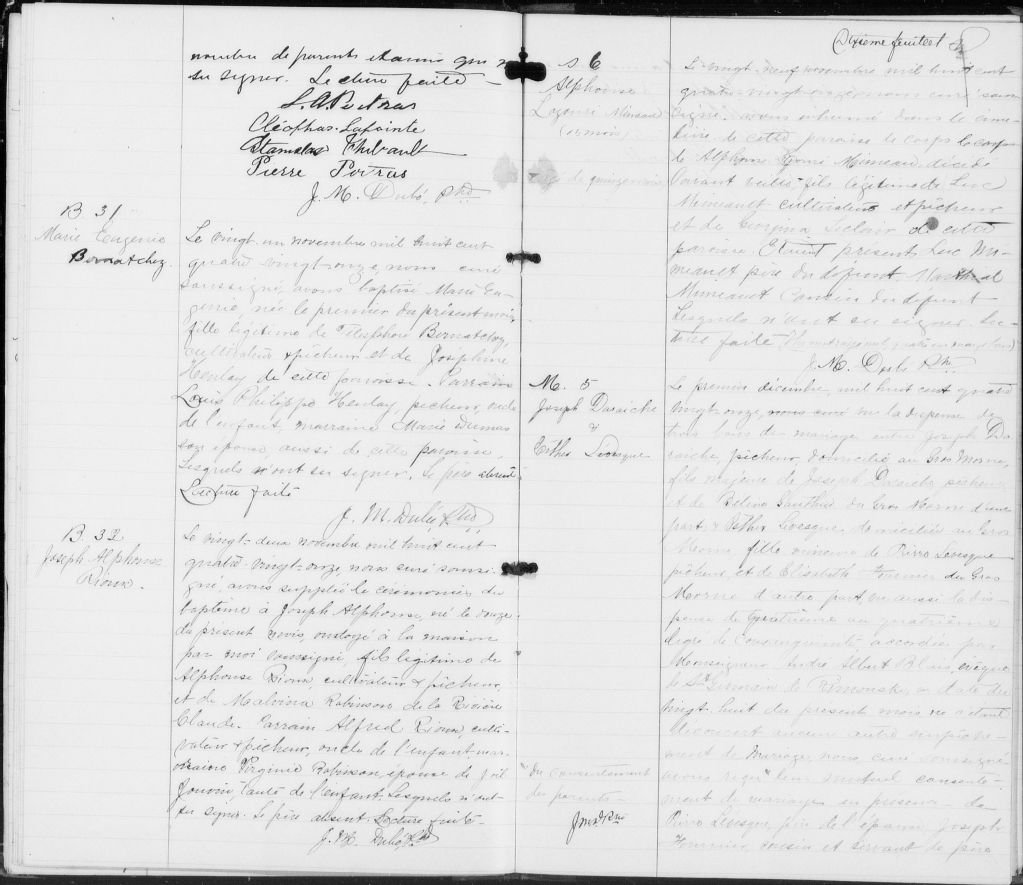 nombre de parents et amis qui n
su signer. Lecture faite
L. A. Poitras
Cléophas Lapointe
Stanislas Thibault
Pierre Poitras
J. M. Dubé, Ptre
B 31
Marie Eugenie
Bernatchez
Le vingt un novembre mil huit cent
quatre vingt onze, nous curé
soussigné, avons baptisé Marie Eu-
genie, née le premier du présent mois,
fille légitime de Télesphore Bernatchez,
cultivateur & pêcheur et de Josephine
Henley de cette paroisse. Parrain
Louis Philippe Henley, pêcheur, oncle
de l'enfant, marraine Marie Dumas
son épouse, aussi de cette paroisse,
Lesquels n'ont su signer. Le père absent.
Lecture faite
J. M. Dubé Ptre
B 32
Joseph Alphonse
Rioux.
Le vingt-deux novembre mil huit cent
quatre-vingt-onze nous curé soussi-
gné, avons supplée les cérémonies du
baptême à Joseph Alphonse, né le onze
du present mois, ondoyé à la maison
par moi soussigné, fils legitime de
Alphonse Rioux, cultivateur & pêcheur,
et de Malvina Robinson de la Rivière
Claude. Parrain Alfred Rioux culti-
vateur & pêcheur, oncle de l'enfant, mar-
raine Virginie Robinson, épouse de
Jouvin, tante de l'enfant. Lesquels n'ont
su signer. Le père absent. Lecture faite-
J. M. Dubé Ptre
Sixième feuillet
S 6
Alphonse
Mineau
de quinze mois
Le vingt-neuf novembre mil huit cent
quatre-vingt onze nous curé sous-
signé, avons inhumé dans le cime-
tière de cette paroisse le corps
de Alphonse Mineau, décédé
fils légitime de Luc
Mineault cultivateur et pêcheur
et de Georgina Leclair de cette
paroisse. Etaient présents Luc Mi-
neault père du defunt
Mineault Cousin du defunt
Lesquels n'ont su signer. Lec-
ture faite
J. M. Dubé Ptre
M. 5
Joseph Daraiche
&
Esther Levesque
Le premier décembre, mil huit cent quatre
vingt-onze, nous curé vu la dispense de
trois bans de mariage entre Joseph Da-
raiche, pêcheur, domicilié au Gros Morne,
fils majeur de Joseph Daraiche pêcheur
et de Gauthier du Gros Morne d'une
part & Esther Levesque domiciliée au Gros
Morne, fille mineure de Pierre Levesque
pêcheur, et de Elisabeth Fournier du Gros
Morne d'autre part, vu aussi la dis-
pense de quatrième au quatrième
degré de consanguinité, accordée par
Monseigneur André Albert Blais, évêque
de St Germain de Rimouski, en date du
vingt-huit du present mois ne s'étant
découvert aucun autre empêche-
ment de mariage, nous curé soussigné
avons reçu " leur mutuel consente-
ment de mariage en presence de
Pierre Levesque, père de l'épouse, Joseph
Fournier, cousin et servant de père
" du consentement
des parents -
J M D Ptre